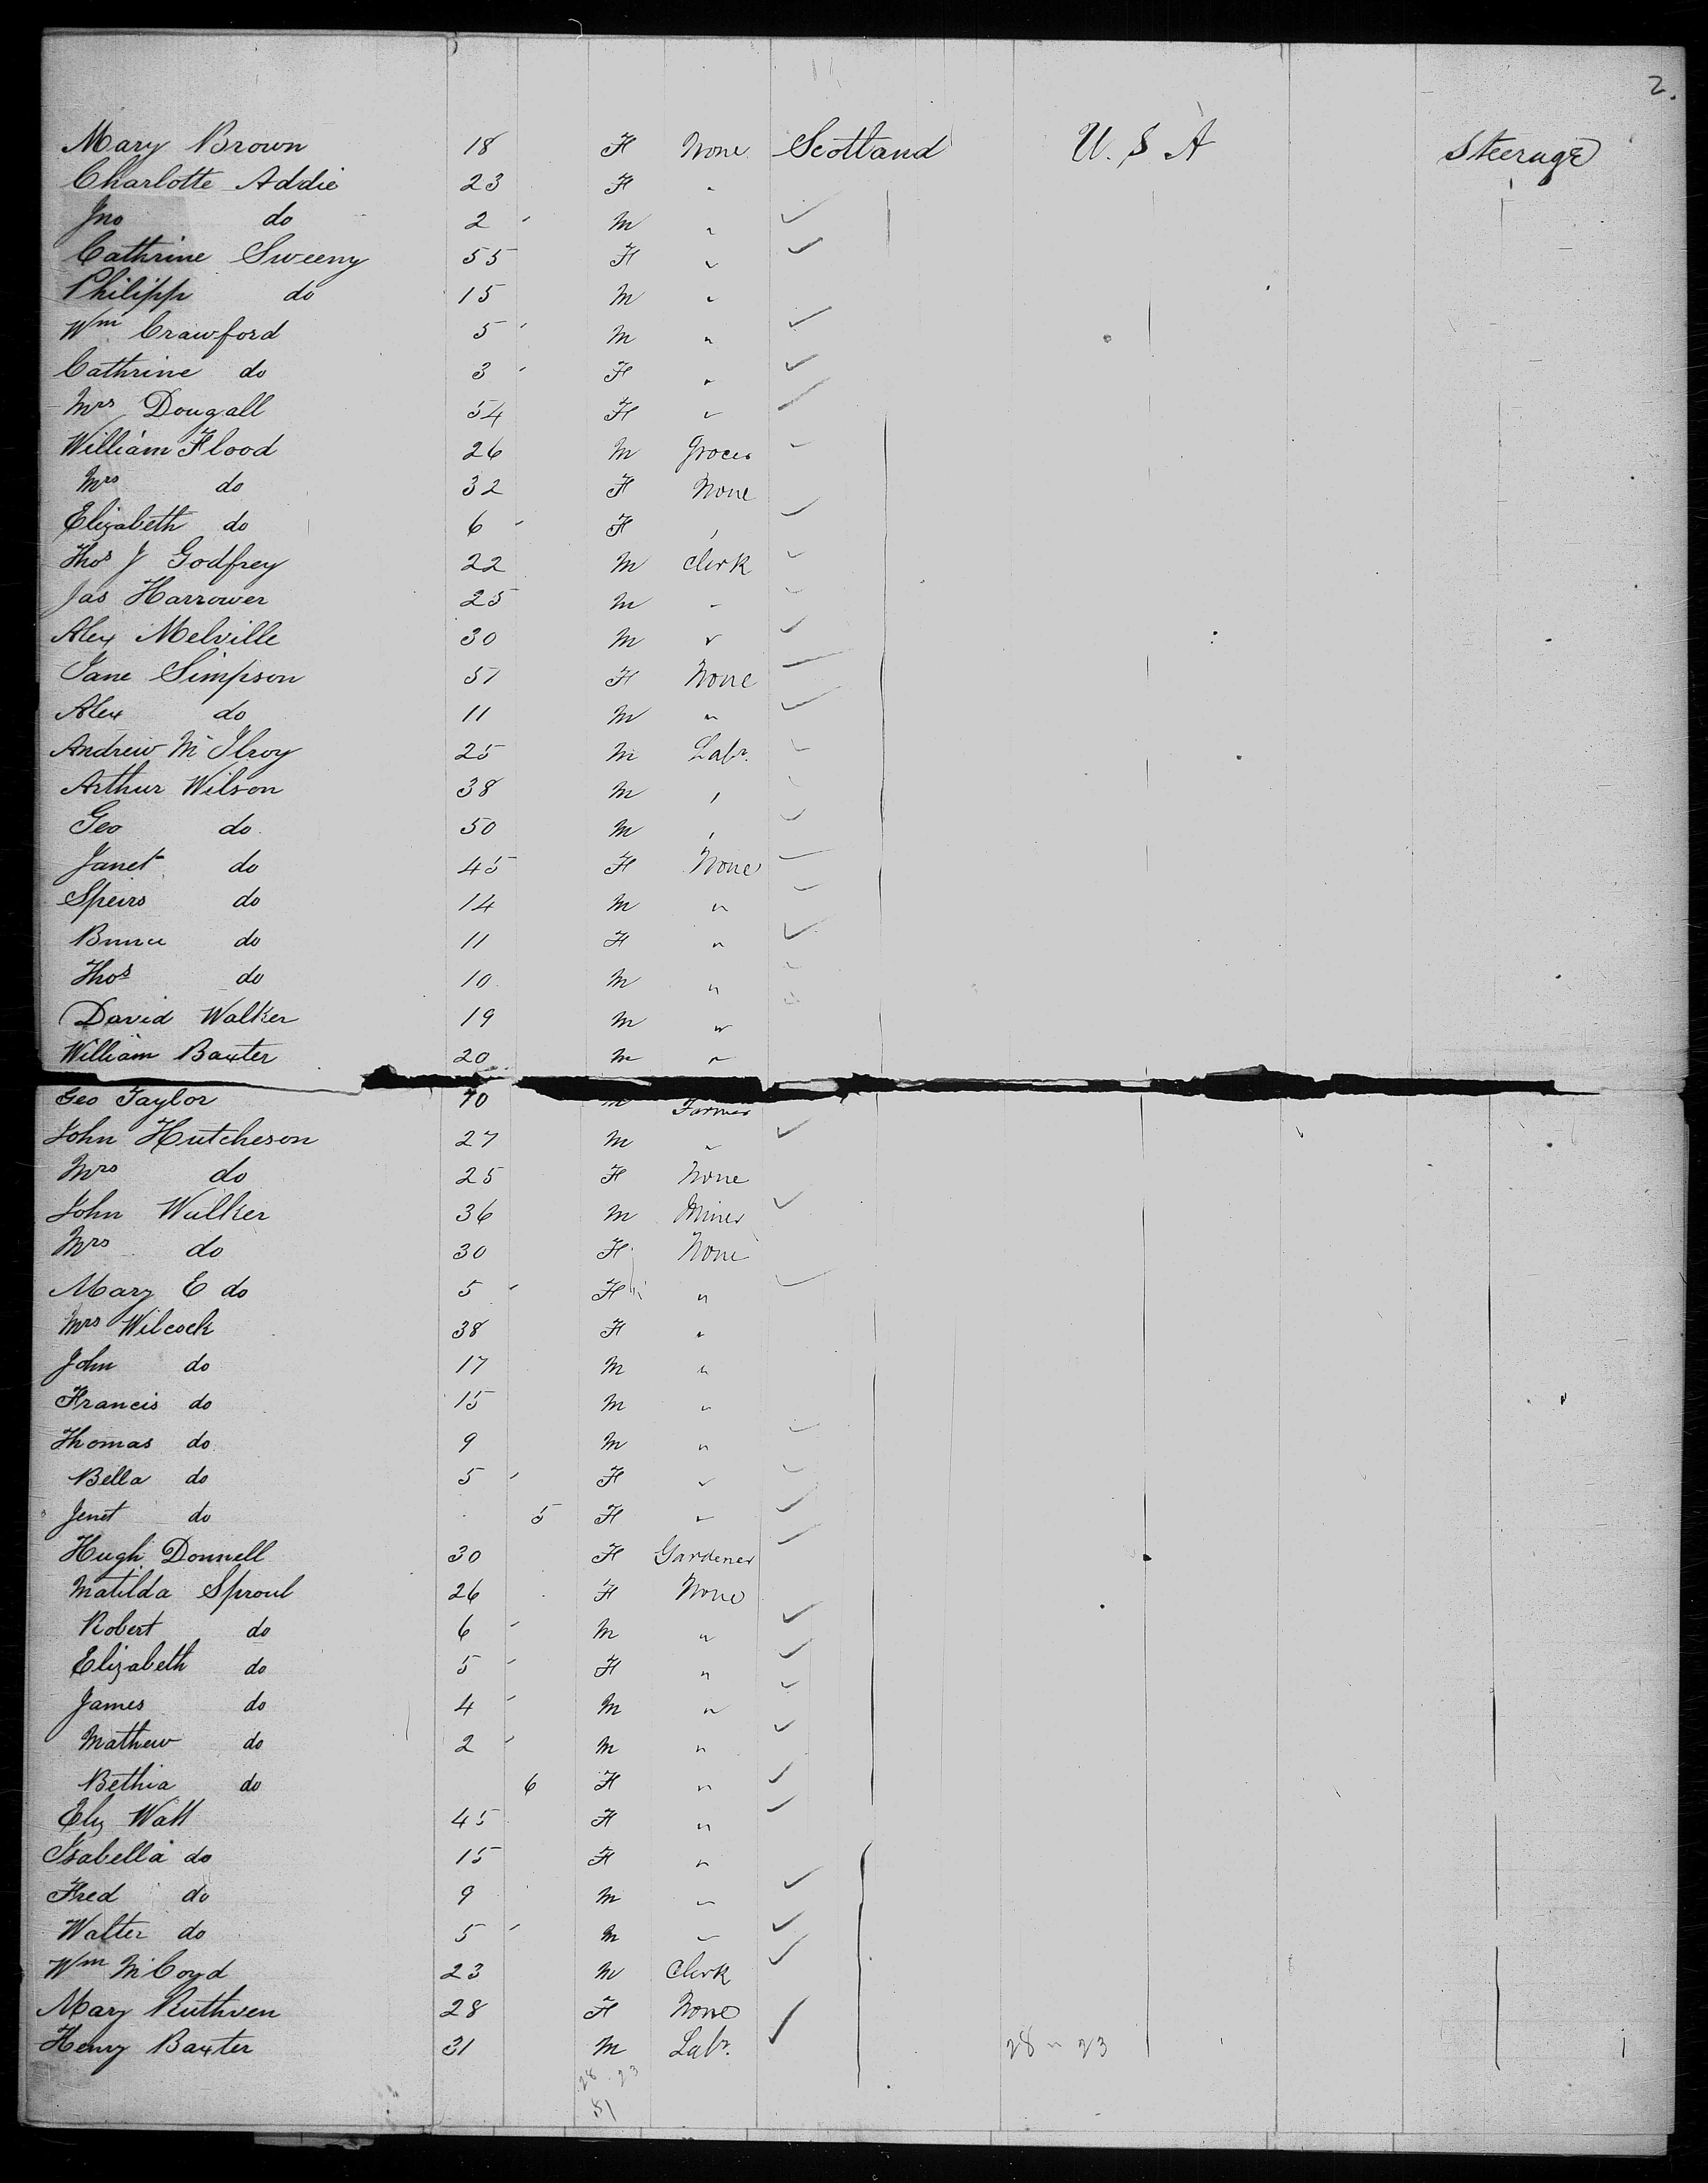 2.
Mary Brown 18 F None Scotland U. S A Steerage
Charlotte Addie 23 F "
Jno do 2 M "
Cathrine Sweeny 55 F "
Philipp do 15 M "
Wm Crawford 5 M "
Cathrine do 3 F "
Mrs Dougall 54 F "
William Flood 26 M Grocer
Mrs do 32 F None
Elizabeth do 6 F "
Thos J Godfrey 22 M Clerk
Jas Harrower 25 M "
Alex Melville 30 M "
Jane Simpson 51 F None
Alex do 11 M "
Andrew McIlroy 25 M Labr.
Arthur Wilson 38 M "
Geo do 50 M "
Janet do 45 F None
Speirs do 14 M "
do 11 F "
Thos do 10 M "
David Walker 19 M "
William Baxter 20 M "
Geo Taylor 70 M Farmer
John Hutcheson 27 M "
Mrs do 25 F None
John Walker 36 M Miner
Mrs do 30 F None
Mary E do 5 F "
Mrs Wilcock 38 F "
John do 17 M "
Francis do 15 M "
Thomas do 9 M "
Bella do 5 F "
Jenet do 5 F "
Hugh Donnell 30 F Gardener
Matilda Sproul 26 F None
Robert do 6 M "
Elizabeth do 5 F "
James do 4 M "
Mathew do 2 M "
Bethia do 6 F "
Eliz Watt 45 F "
Isabella do 15 F "
Fred do 9 M "
Walter do 5 M "
Wm McCoyd 23 M Clerk
Mary Ruthven 28 F None
Henry Baxter 31 M Labr. 28 " 23
28 23
51